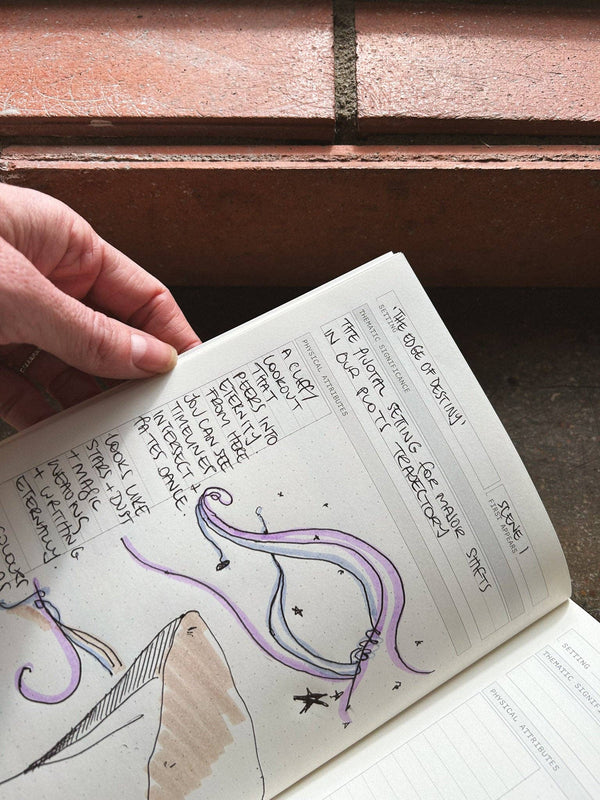 SETTING
'THE EDGE OF DESTINY'
FIRST APPEARS
SCENE 1
THEMATIC SIGNIFICANCE
THE PIVOTAL SETTING FOR MAJOR SHIFTS
IN OUR PLOTS TRAJECTORY
PHYSICAL ATTRIBUTES
A CLIFFY
LOOKOUT
THAT
PEERS INTO
ETERNITY
FROM HERE
YOU CAN SEE
TIMELINES
INTERSECT +
FATES DANCE
LOOKS LIKE
STARS + DUST
+ MAGIC
WEAVING
+ WRITHING
ETERNALLY
COLOURS
SETTING
THEMATIC SIGNIF
PHYSICAL ATTRIBUTES